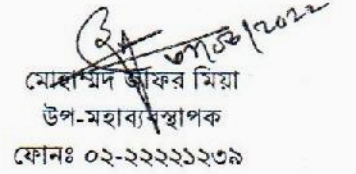 মোহাম্মদ জাফর মিয়া
উপ-মহাব্যবস্থাপক
ফোনঃ ০২-২২২২১২৩৯